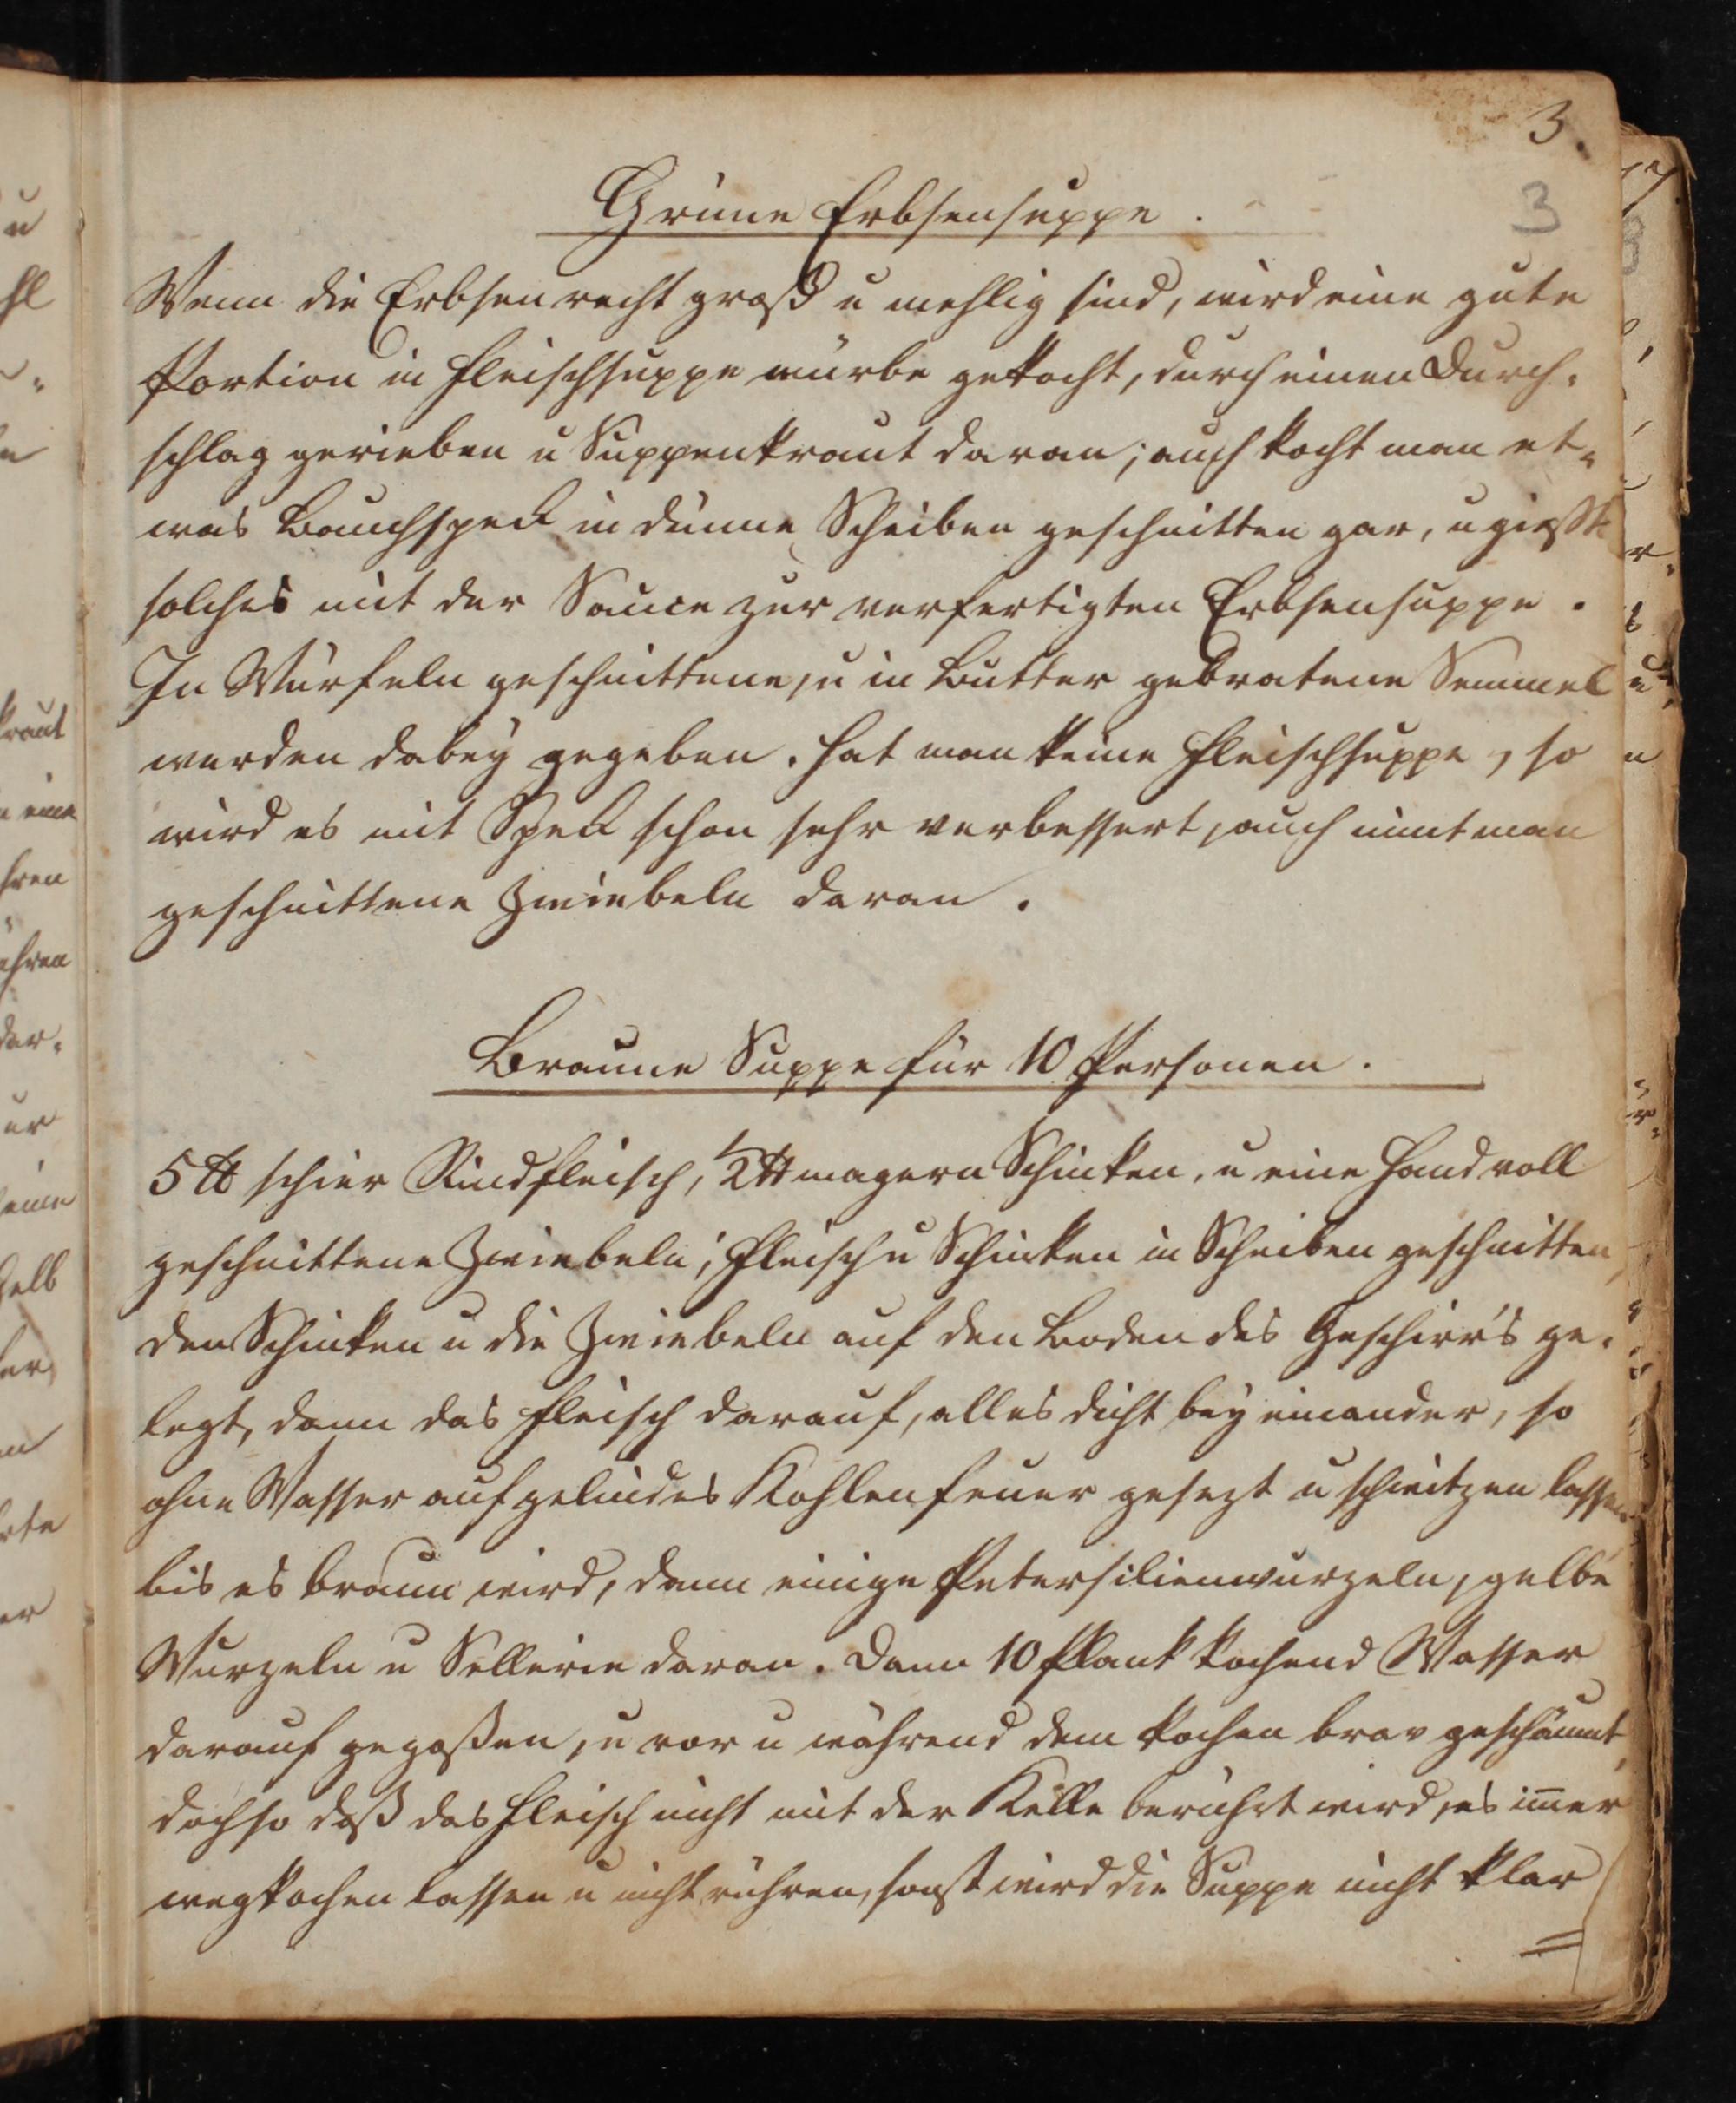 3.
3
Grüne Erbsensuppe.
Wenn die Erbsen recht groß u mehlig sind, wird eine gute
Portion in Fleischsuppe mürbe gekocht, durch einen Durch-
schlag gerieben u Suppenkraut daran; auch kocht man et-
was Bauchspeck in dünne Scheiben geschnitten gar, u gießt
solches mit der Sauce zur verfertigten Erbsensuppe.
In Würfeln geschnittene, u in Butter gebratene Semmel
werden dabey gegeben. Hat man keine Fleischsuppe, so
wird es mit Speck schon sehr verbessert, auch nimt man
geschnittene Zwiebeln daran.
Braune Suppe für 10 Personen.
5 ℔ schier Rindfleisch, 1/2 ℔ magern Schinken, u eine Hand voll
geschnittene Zwiebeln; Fleisch u Schinken in Scheiben geschnitten,
den Schinken u die Zwiebeln auf den Boden des Geschirr's ge-
legt, dann das Fleisch darauf, alles dicht bey einander, so
ohne Wasser auf gelindes Kohlenfeuer gesezt u schwitzen lassen
bis es braun wird, dann einige Petersilienwurzeln, gelbe
Wurzeln u Sellerie daran. Dann 10 Plank kochend Wasser
darauf gegoßen, u vor u während dem kochen brav geschäumt,
doch so daß das Fleisch nicht mit der Kelle berührt wird, es im̄er
wegkochen lassen u nicht rühren, sonst wird die Suppe nicht klar
=